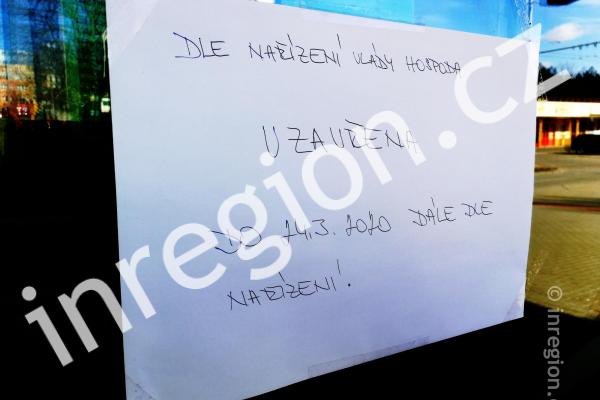 DLE NAŘÍZENÍ VLÁDY HOSPODA
UZAVŘENA
DO 24.3.2020 DÁLE DLE
NAŘÍZENÍ!
inregion.cz
© inregion.